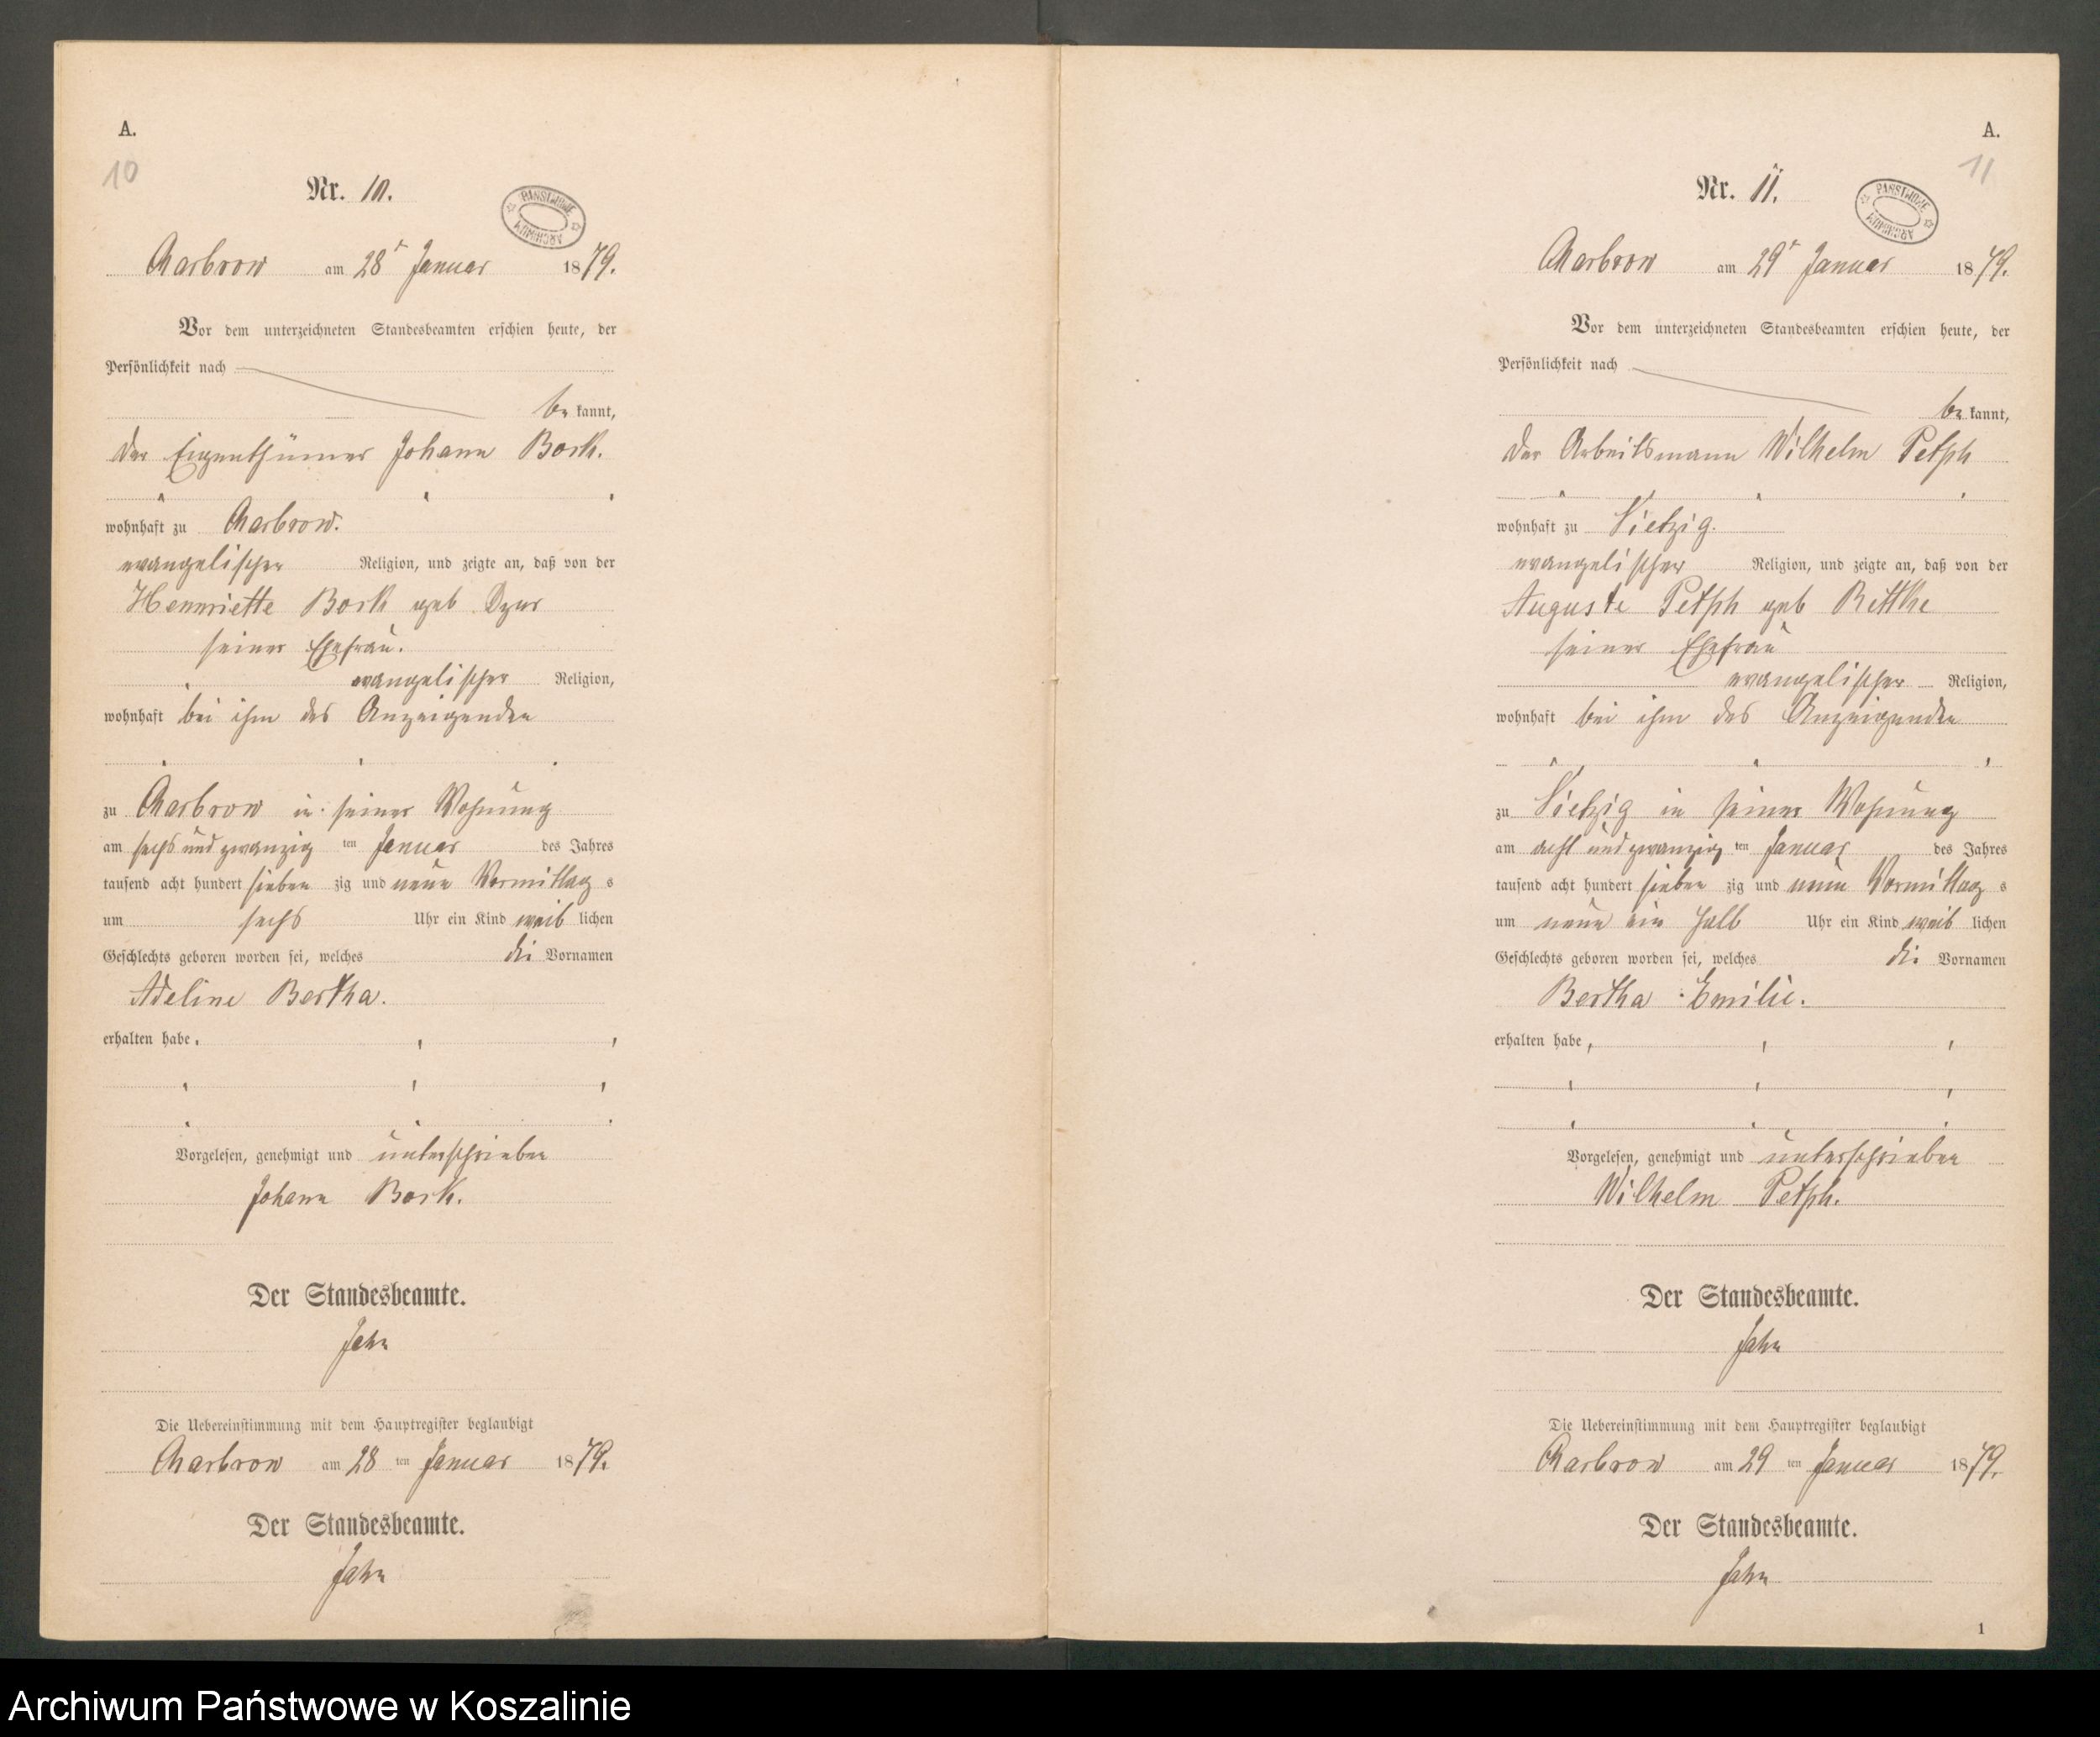 A.
10
Nr. 10.
PAŃSTWOWE ARCHIWUM
Charbrow am 28t Januar 1879.
Vor dem unterzeichneten Standesbeamten erschien heute, der
Persönlichkeit nach
be kannt,
der Eigenthümer Johann Bork.
wohnhaft zu Charbrow.
evangelischer Religion, und zeigte an, daß von der
Henriette Bork geb
seiner Ehefrau.
evangelischer Religion,
wohnhaft bei ihm des Anzeigenden
zu Charbrow in seiner Wohnung
am sechs und zwanzig ten Januar des Jahres
tausend acht hundert sieben zig und neun Vormittag s
um sechs Uhr ein Kind weib lichen
Geschlechts geboren worden sei, welches die Vornamen
Adeline Bertha.
erhalten habe
Vorgelesen, genehmigt und unterschrieben
Johann Bork.
Der Standesbeamte.
Jahn
Die Uebereinstimmung mit dem Hauptregister beglaubigt
Charbrow am 28 ten Januar 1879.
Der Standesbeamte.
Jahn
A.
11
Nr. 11.
PAŃSTWOWE ARCHIWUM
Charbrow am 29t Januar 1879.
Vor dem unterzeichneten Standesbeamten erschien heute, der
Persönlichkeit nach
be kannt,
der Arbeitsmann Wilhelm Petsch
wohnhaft zu Vietzig.
evangelischer Religion, und zeigte an, daß von der
Auguste Petsch geb Rettke
seiner Ehefrau
evangelischer Religion,
wohnhaft bei ihm des Anzeigenden
zu Vietzig in seiner Wohnung
am acht und zwanzig ten Januar des Jahres
tausend acht hundert sieben zig und neun Vormittag s
um neun ein halb Uhr ein Kind weib lichen
Geschlechts geboren worden sei, welches die Vornamen
Bertha Emilie.
erhalten habe
Vorgelesen, genehmigt und unterschrieben
Wilhelm Petsch.
Der Standesbeamte.
Jahn
Die Uebereinstimmung mit dem Hauptregister beglaubigt
Charbrow am 29 ten Januar 1879.
Der Standesbeamte.
Jahn
1
Archiwum Państwowe w Koszalinie